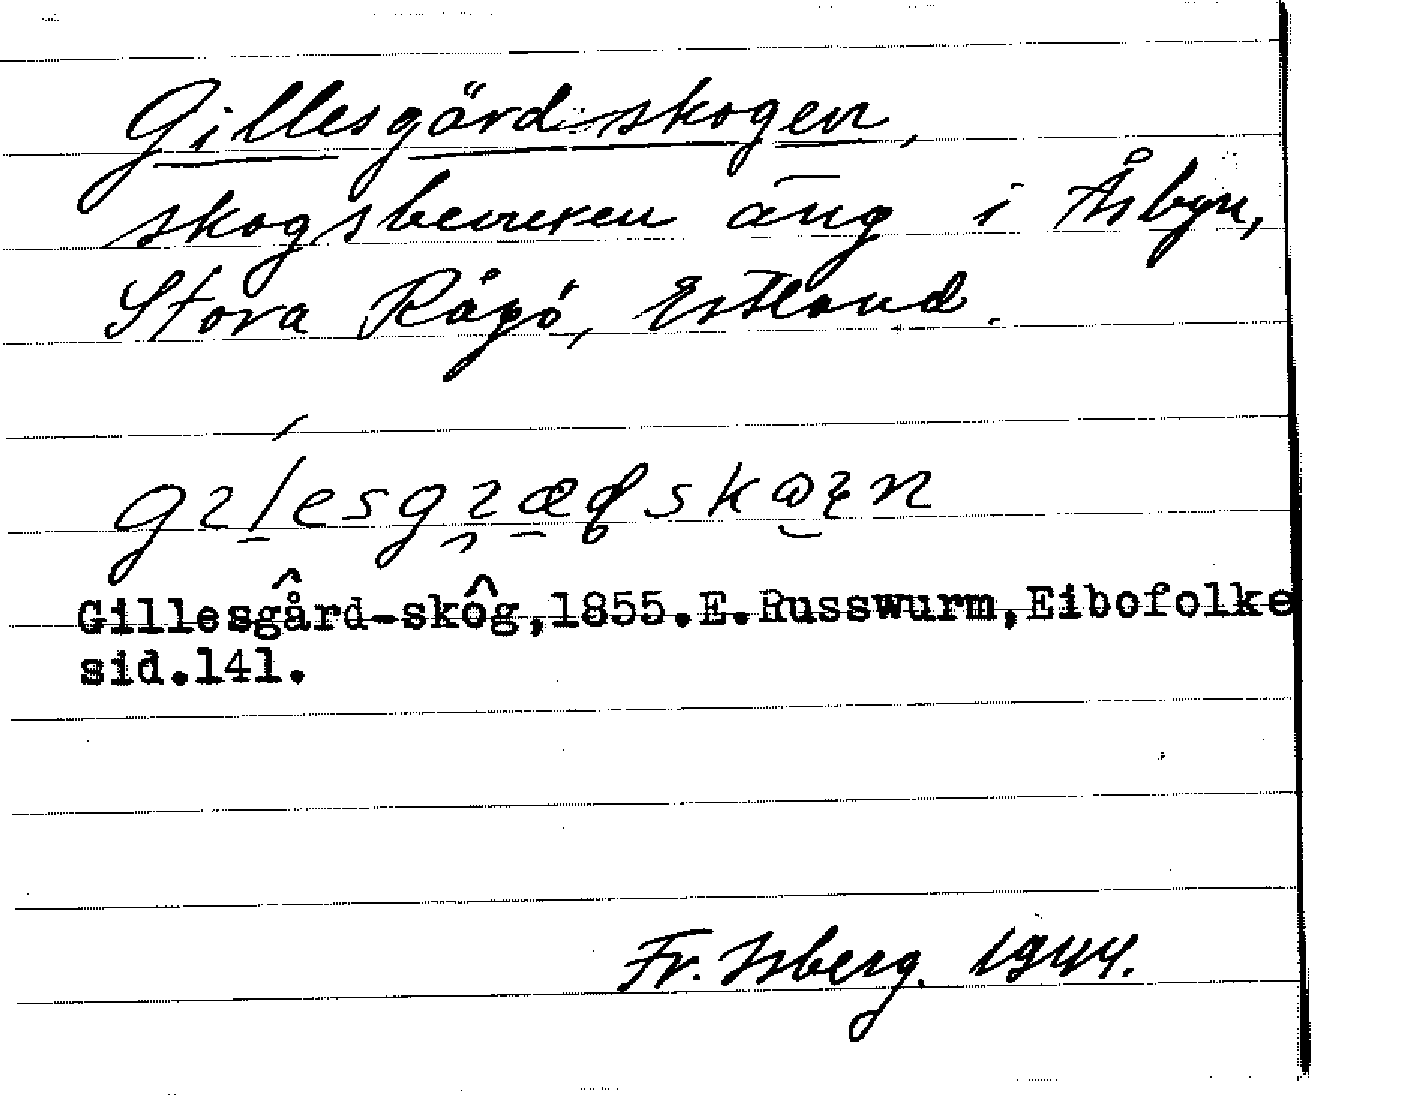 Gillesgärdskogen,
skogsbevuxen äng i Åsbyn,
Stora Rågö, Estland.
Gillesgård-skôg,1855.E.Russwurm,Eibofolke
sid.141.
Fr. Isberg. 1944.